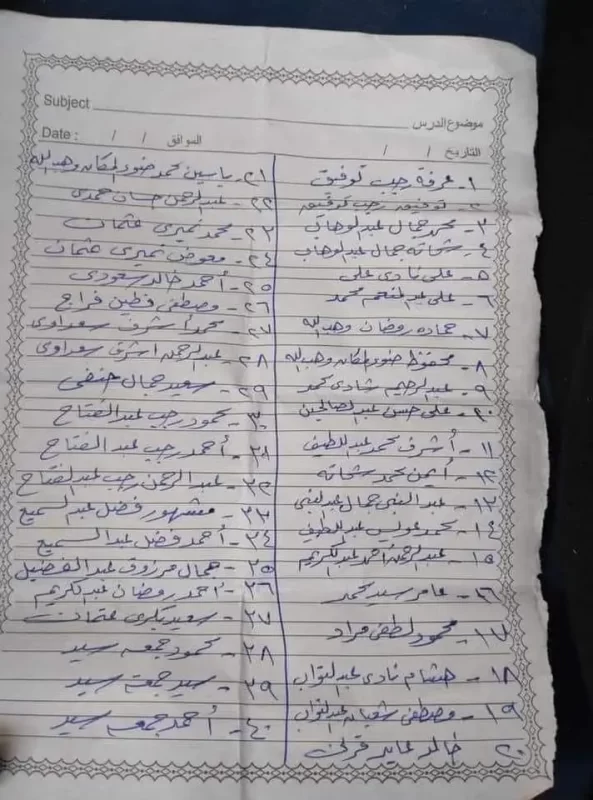 Subject
موضوع الدرس
Date : / / الموافق
التاريخ / /
١- عرفة رجب توفيق
٢- توفيق رجب توفيق
٣- محمد جمال عبد الوهاب
٤- شحاته جمال عبد الوهاب
٥- على نادى على
٦- على عبد المنعم محمد
٧- حماده رمضان وهب الله
٨- محفوظ ضنور المكان وهب الله
٩- عبد الرحيم شادى محمد
١٠- على حسن عبد الصالحين
١١- أشرف محمد عبد اللطيف
١٢- أيمن محمد شحاته
١٣- عبد النبى جمال عبد النبى
١٤- محمد عويس عبد اللطيف
١٥- عبد الرحمن احمد عبد الكريم
١٦- عامر سيد محمد
١٧- محمود لطفى مراد
١٨- هشام نادى عبد التواب
١٩- مصطفى شعبان عبد التواب
٢٠ خالد عايد قرنى
٢١- ياسين محمد ضنور المكان وهب الله
٢٢- عبد الرحمن حسان حمدى
٢٣- محمد نميرى عثمان
٢٤- معوض نميرى عثمان
٢٥- أحمد خالد سعودى
٢٦- مصطفى فطين فراج
٢٧- محمد أشرف سعداوى
٢٨- عبد الرحمن اشرف سعداوى
٢٩- سعيد جمال حنفى
٣٠- محمود رجب عبد الفتاح
٣١- أحمد رجب عبد الفتاح
٣٢- عبد الرحمن رجب عبد الفتاح
٣٣- مشهور فضل عبد السميع
٣٤- أحمد فضل عبد السميع
٣٥- جمال مرزوق عبد الفضيل
٣٦- احمد رمضان عبد الكريم
٣٧- سعيد بكرى عثمان
٣٨- محمود جمعه سيد
٣٩- سيد جمعه سيد
٤٠- أحمد جمعه سيد